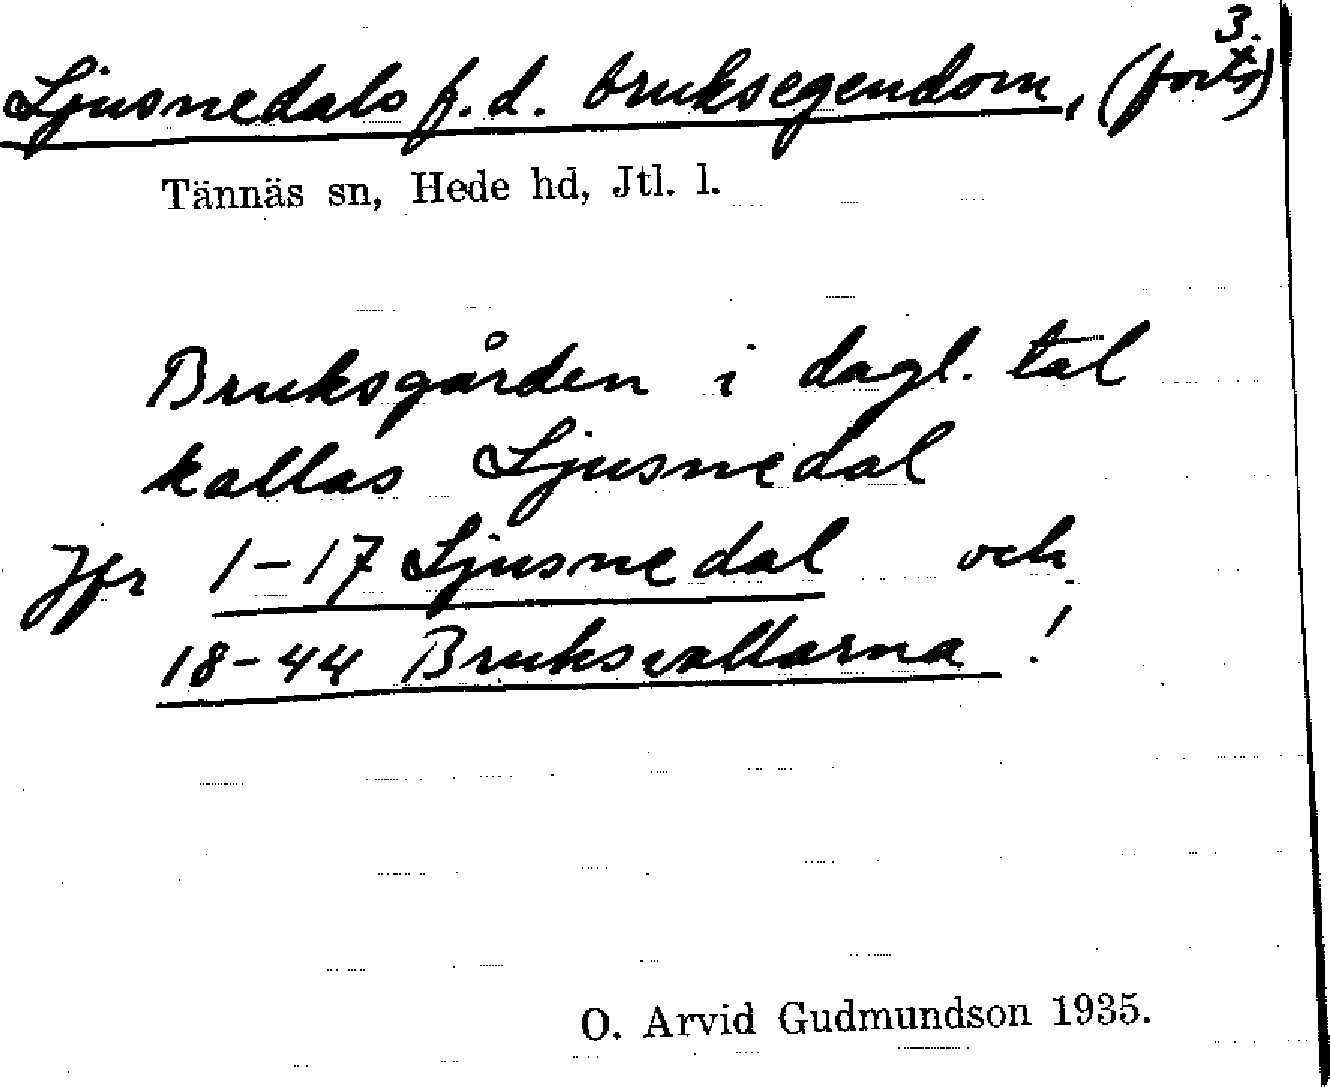 3.
Ljusnedals f.d. bruksegendom, (forts)
Tännäs sn, Hede hd, Jtl. l.
Bruksgården i dagl. tal
kallas Ljusnedal
Jfr 1-17 Ljusnedal och
18-44 Bruksvallarna!
O. Arvid Gudmundson 1935.